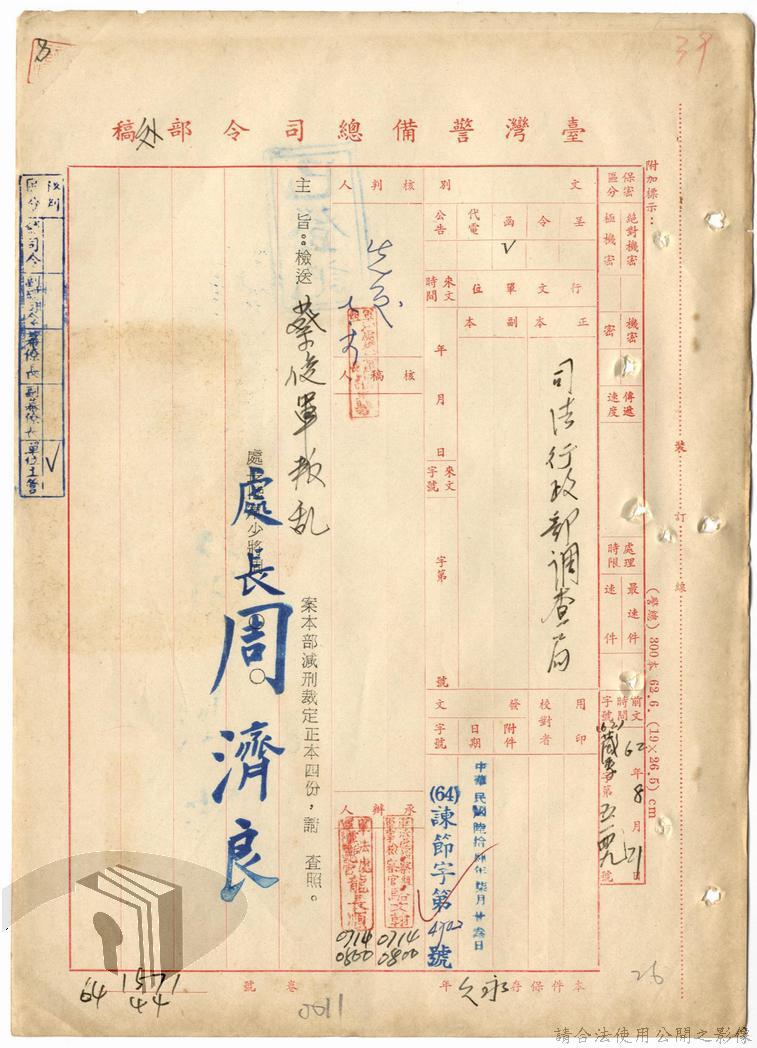 39
8
臺灣警備總司令部稿
外
附加標示：
裝訂線
(警總) 300本 62.6. (19×26.5) cm
保密區分
絕對機密
極機密
機密
密
傳遞速度
處理時限
最速件
速件
前文時間字號
62年8月21日
字第
號
文別
呈
令
函
代電
公告
V
行文單位
正本
副本
司法行政部调查局
來文時間
年月日
來文字號
字第
號
用印
校對者
發文
附件
日期
字號
中華民國陸拾肆年柒月廿叁日
(64)諫節字第4702號
核判人
核稿人
承辦人
0714
0800
0714
0800
主旨：檢送蔡俊軍叛乱
案本部減刑裁定正本四份，請 查照。
處長周濟良
級別
區分
司令
副司令
參謀長
副參謀長
單位主管
V
本件保存永久年
卷號
64
1571
441
0011
26
請合法使用公開之影像